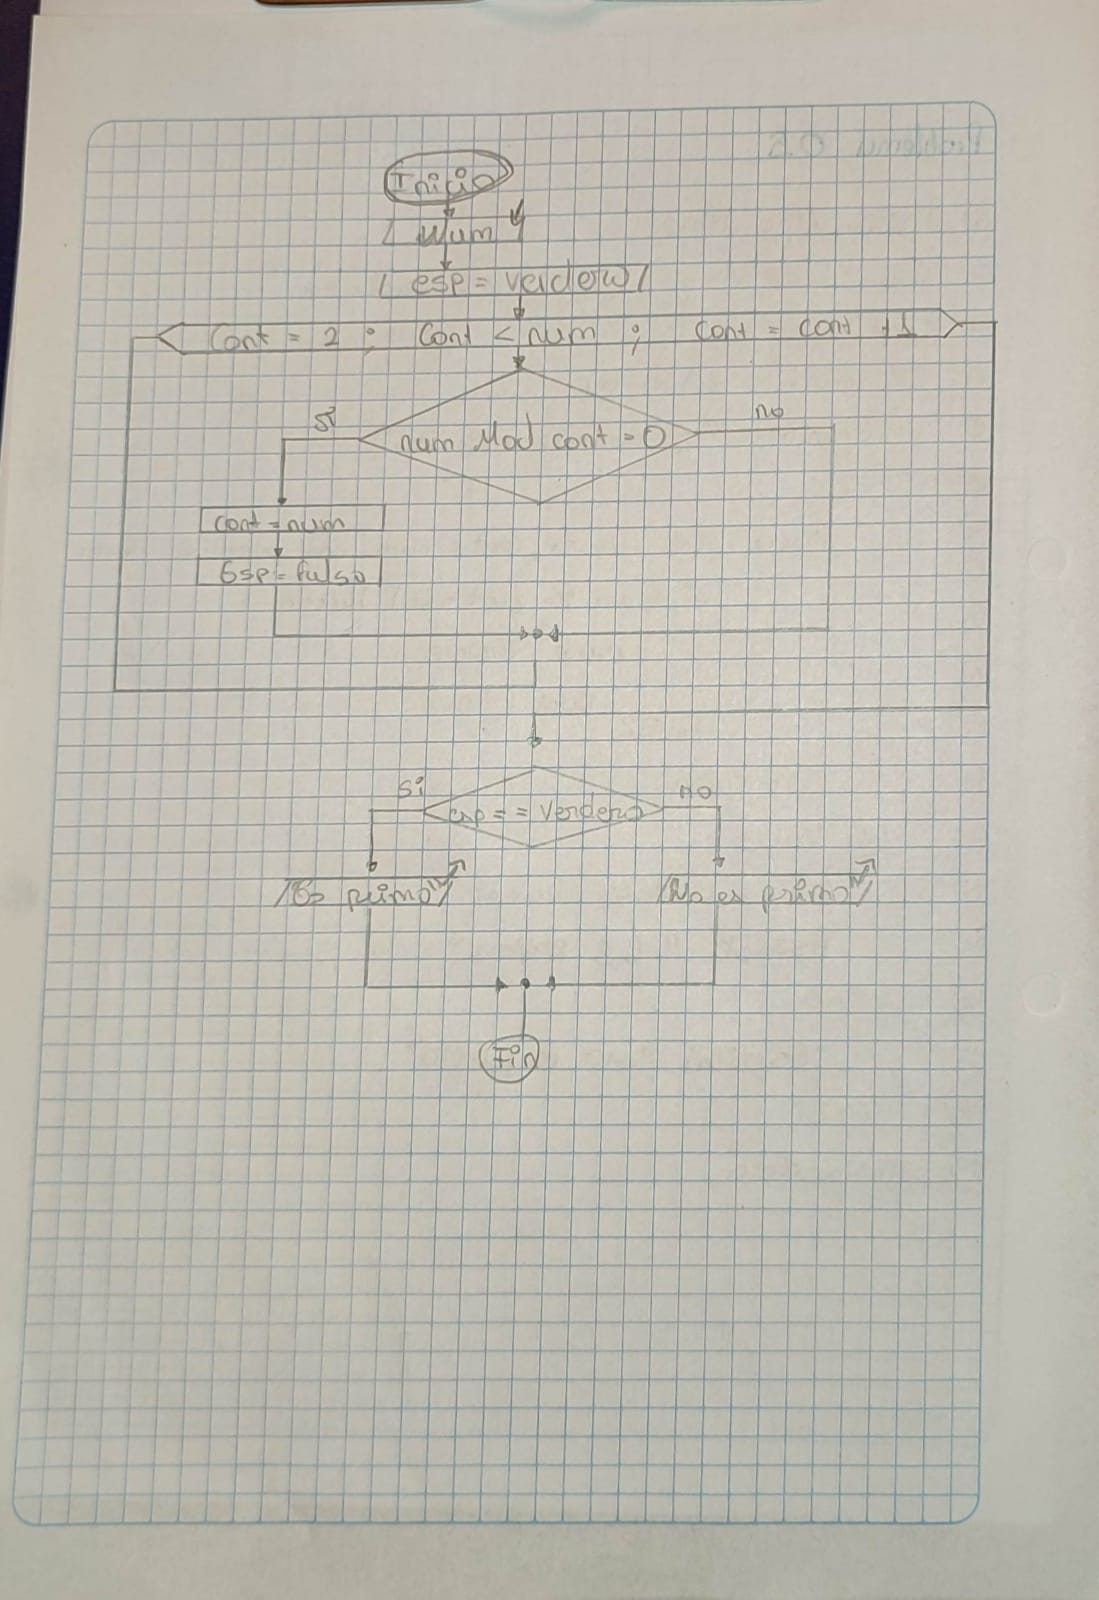 Inicio
Num
esp = verdero
Cont = 2 ; Cont < num ; cont = cont +1
Si no
num Mod cont = 0
cont = num
Esp = falso
Si no
esp == verdero
"Es primo" "No es primo"
Fin